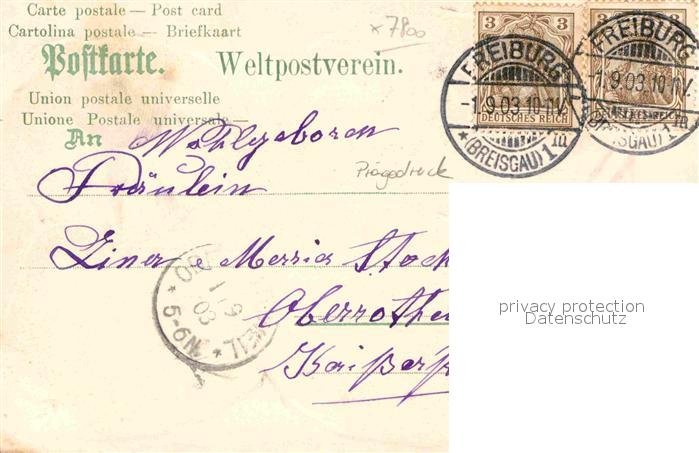 Carte postale — Post card
Cartolina postale — Briefkaart
Postkarte. Weltpostverein.
Union postale universelle
Unione Postale universale—
An
x 7800
3 3
DEUTSCHES REICH
FREIBURG
-1.9.03.10-11V.
* (BREISGAU) 1 m
FREIBURG
-1.9.03.10-11V.
(BREISGAU) 1 m
Wohlgeboren
Fräulein
Prägedruck
Lina & Maria Stoc
Oberrothe
1 9
03
* 5-6N *
EIL
Kaißers
privacy protection
Datenschutz